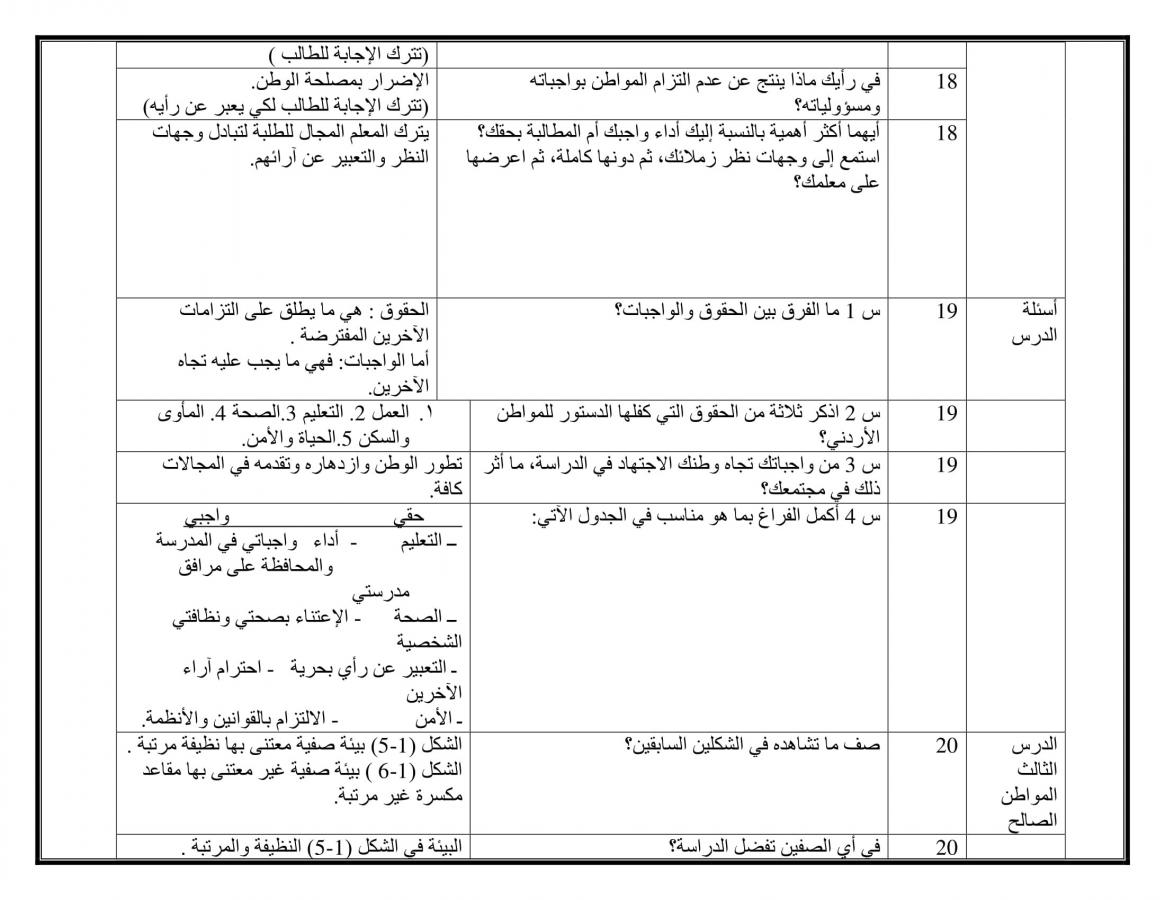 (تترك الإجابة للطالب )
18
في رأيك ماذا ينتج عن عدم التزام المواطن بواجباته
ومسؤولياته؟
الإضرار بمصلحة الوطن.
(تترك الإجابة للطالب لكي يعبر عن رأيه)
18
أيهما أكثر أهمية بالنسبة إليك أداء واجبك أم المطالبة بحقك؟
استمع إلى وجهات نظر زملائك، ثم دونها كاملة، ثم اعرضها
على معلمك؟
يترك المعلم المجال للطلبة لتبادل وجهات
النظر والتعبير عن آرائهم.
أسئلة
الدرس
19
س 1 ما الفرق بين الحقوق والواجبات؟
الحقوق : هي ما يطلق على التزامات
الآخرين المفترضة .
أما الواجبات: فهي ما يجب عليه تجاه
الآخرين.
19
س 2 اذكر ثلاثة من الحقوق التي كفلها الدستور للمواطن
الأردني؟
١. العمل 2. التعليم 3.الصحة 4. المأوى
والسكن 5.الحياة والأمن.
19
س 3 من واجباتك تجاه وطنك الاجتهاد في الدراسة، ما أثر
ذلك في مجتمعك؟
تطور الوطن وازدهاره وتقدمه في المجالات
كافة.
19
س 4 أكمل الفراغ بما هو مناسب في الجدول الآتي:
حقي واجبي
– التعليم - أداء واجباتي في المدرسة
والمحافظة على مرافق
مدرستي
– الصحة - الإعتناء بصحتي ونظافتي
الشخصية
- التعبير عن رأي بحرية - احترام آراء
الآخرين
- الأمن - الالتزام بالقوانين والأنظمة.
الدرس
الثالث
المواطن
الصالح
20
صف ما تشاهده في الشكلين السابقين؟
الشكل (1-5) بيئة صفية معتنى بها نظيفة مرتبة .
الشكل (1-6 ) بيئة صفية غير معتنى بها مقاعد
مكسرة غير مرتبة.
20
في أي الصفين تفضل الدراسة؟
البيئة في الشكل (1-5) النظيفة والمرتبة .